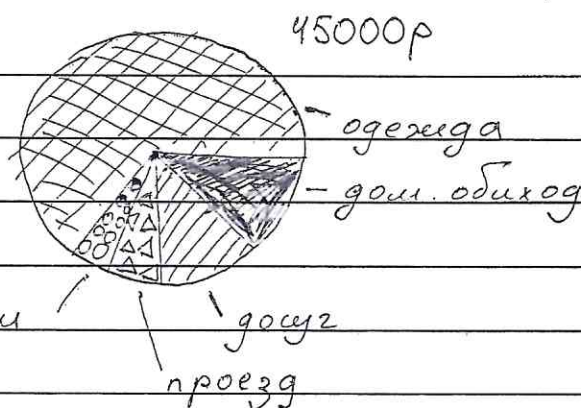 45000р
одежда
дом. обиход
досуг
проезд